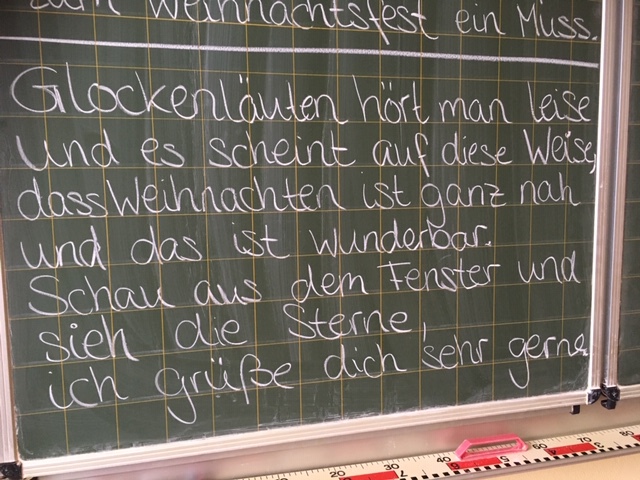 zum Weihnachtsfest ein Muss.
Glockenläuten hört man leise
und es scheint auf diese Weise,
dass Weihnachten ist ganz nah
und das ist wunderbar.
Schau aus dem Fenster und
sieh die Sterne,
ich grüße dich sehr gerne
20 30 40 70 80